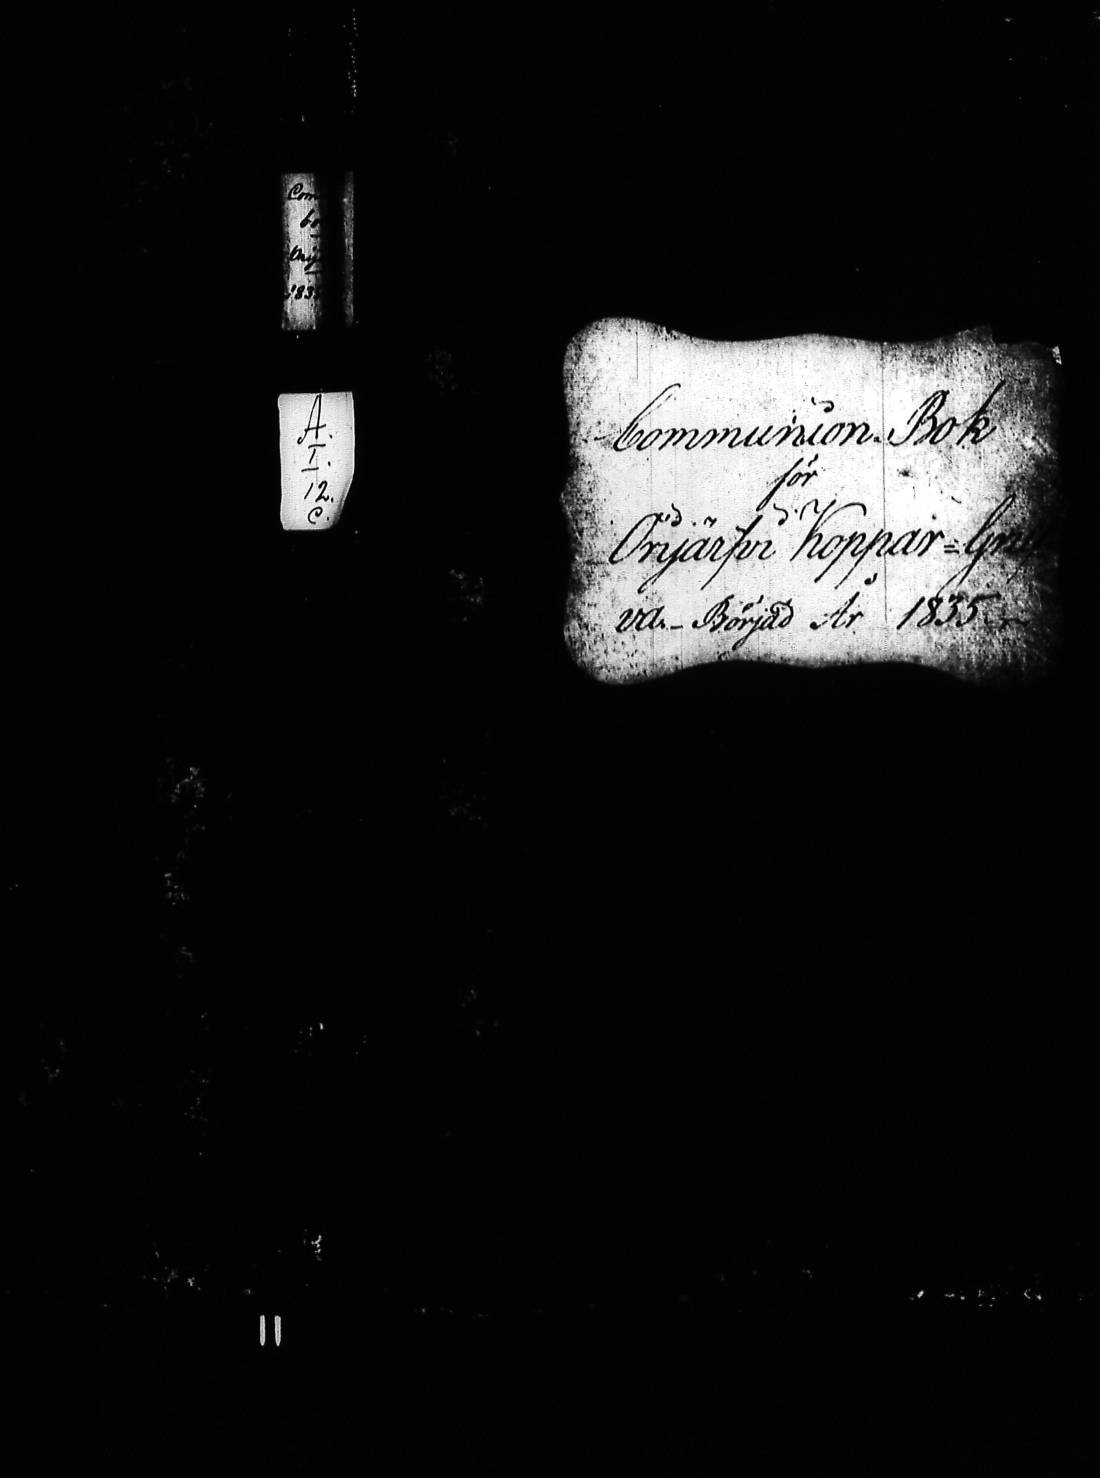 Com
bo
Orij
1835
A.
I.
12.
C.
Communion-Bok
för
Orijärfvi Koppar=Gru
va.- Börjad År 1835.